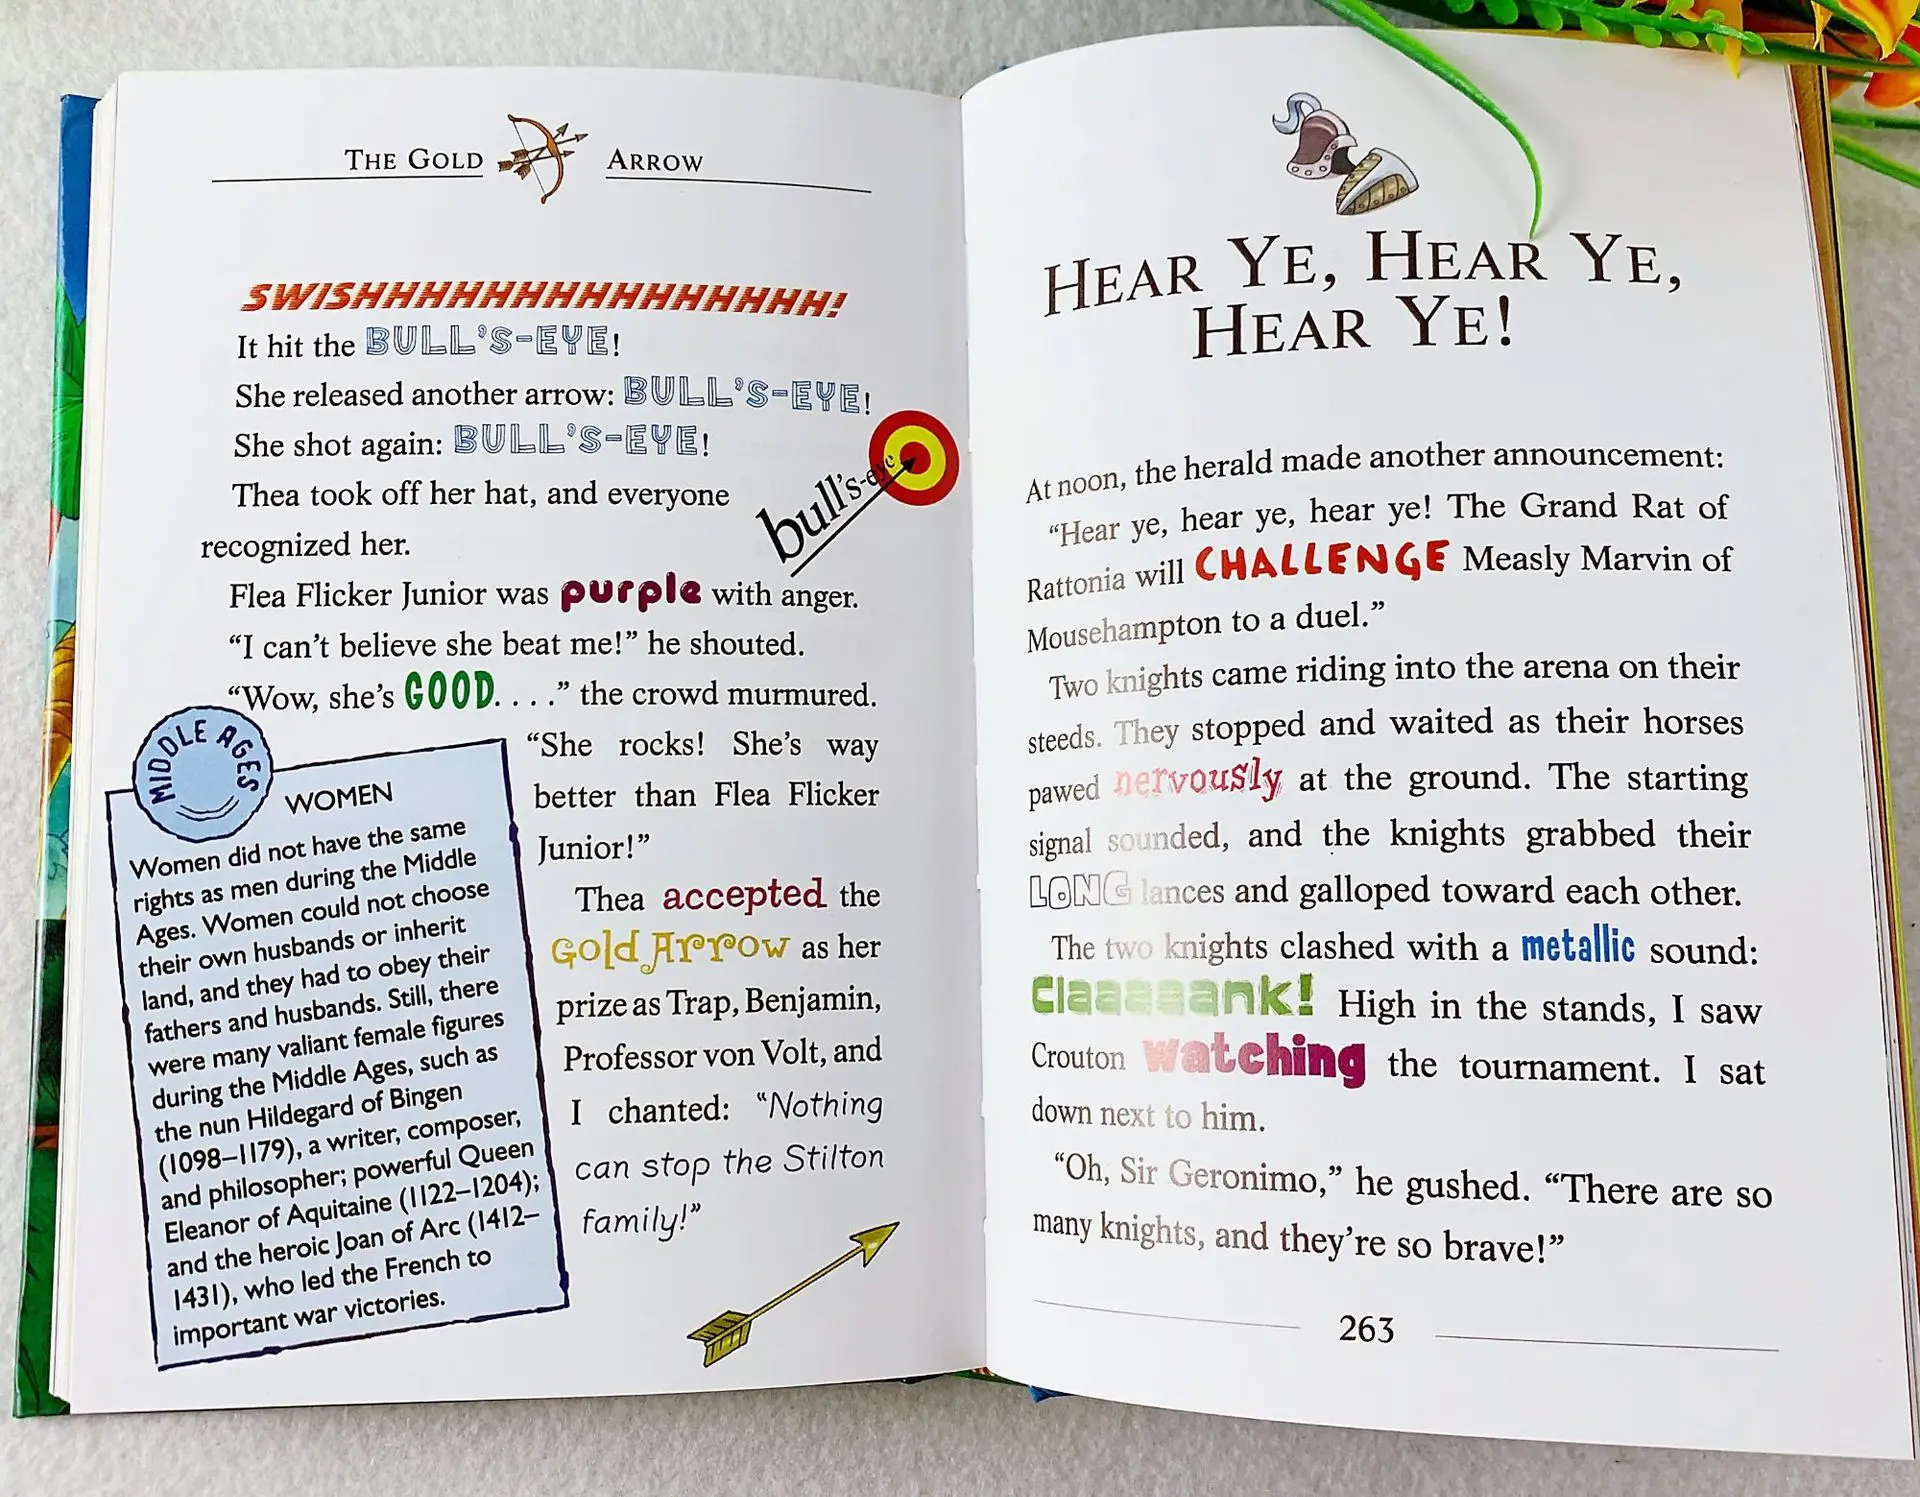 THE GOLD ARROW
SWISHHHHHHHHHHHHHHHHH!
It hit the BULL'S-EYE!
She released another arrow: BULL'S-EYE!
She shot again: BULL'S-EYE!
Thea took off her hat, and everyone
recognized her.
bull's-eye
Flea Flicker Junior was purple with anger.
“I can't believe she beat me!” he shouted.
“Wow, she's GOOD. . . .” the crowd murmured.
“She rocks! She's way
better than Flea Flicker
Junior!”
Thea accepted the
Gold Arrow as her
prize as Trap, Benjamin,
Professor von Volt, and
I chanted: “Nothing
can stop the Stilton
family!”
MIDDLE AGES
WOMEN
Women did not have the same
rights as men during the Middle
Ages. Women could not choose
their own husbands or inherit
land, and they had to obey their
fathers and husbands. Still, there
were many valiant female figures
during the Middle Ages, such as
the nun Hildegard of Bingen
(1098–1179), a writer, composer,
and philosopher; powerful Queen
Eleanor of Aquitaine (1122–1204);
and the heroic Joan of Arc (1412–
1431), who led the French to
important war victories.
HEAR YE, HEAR YE,
HEAR YE!
At noon, the herald made another announcement:
“Hear ye, hear ye, hear ye! The Grand Rat of
Rattonia will CHALLENGE Measly Marvin of
Mousehampton to a duel.”
Two knights came riding into the arena on their
steeds. They stopped and waited as their horses
pawed nervously at the ground. The starting
signal sounded, and the knights grabbed their
LONG lances and galloped toward each other.
The two knights clashed with a metallic sound:
Claaaaaank! High in the stands, I saw
Crouton watching the tournament. I sat
down next to him.
“Oh, Sir Geronimo,” he gushed. “There are so
many knights, and they're so brave!”
263